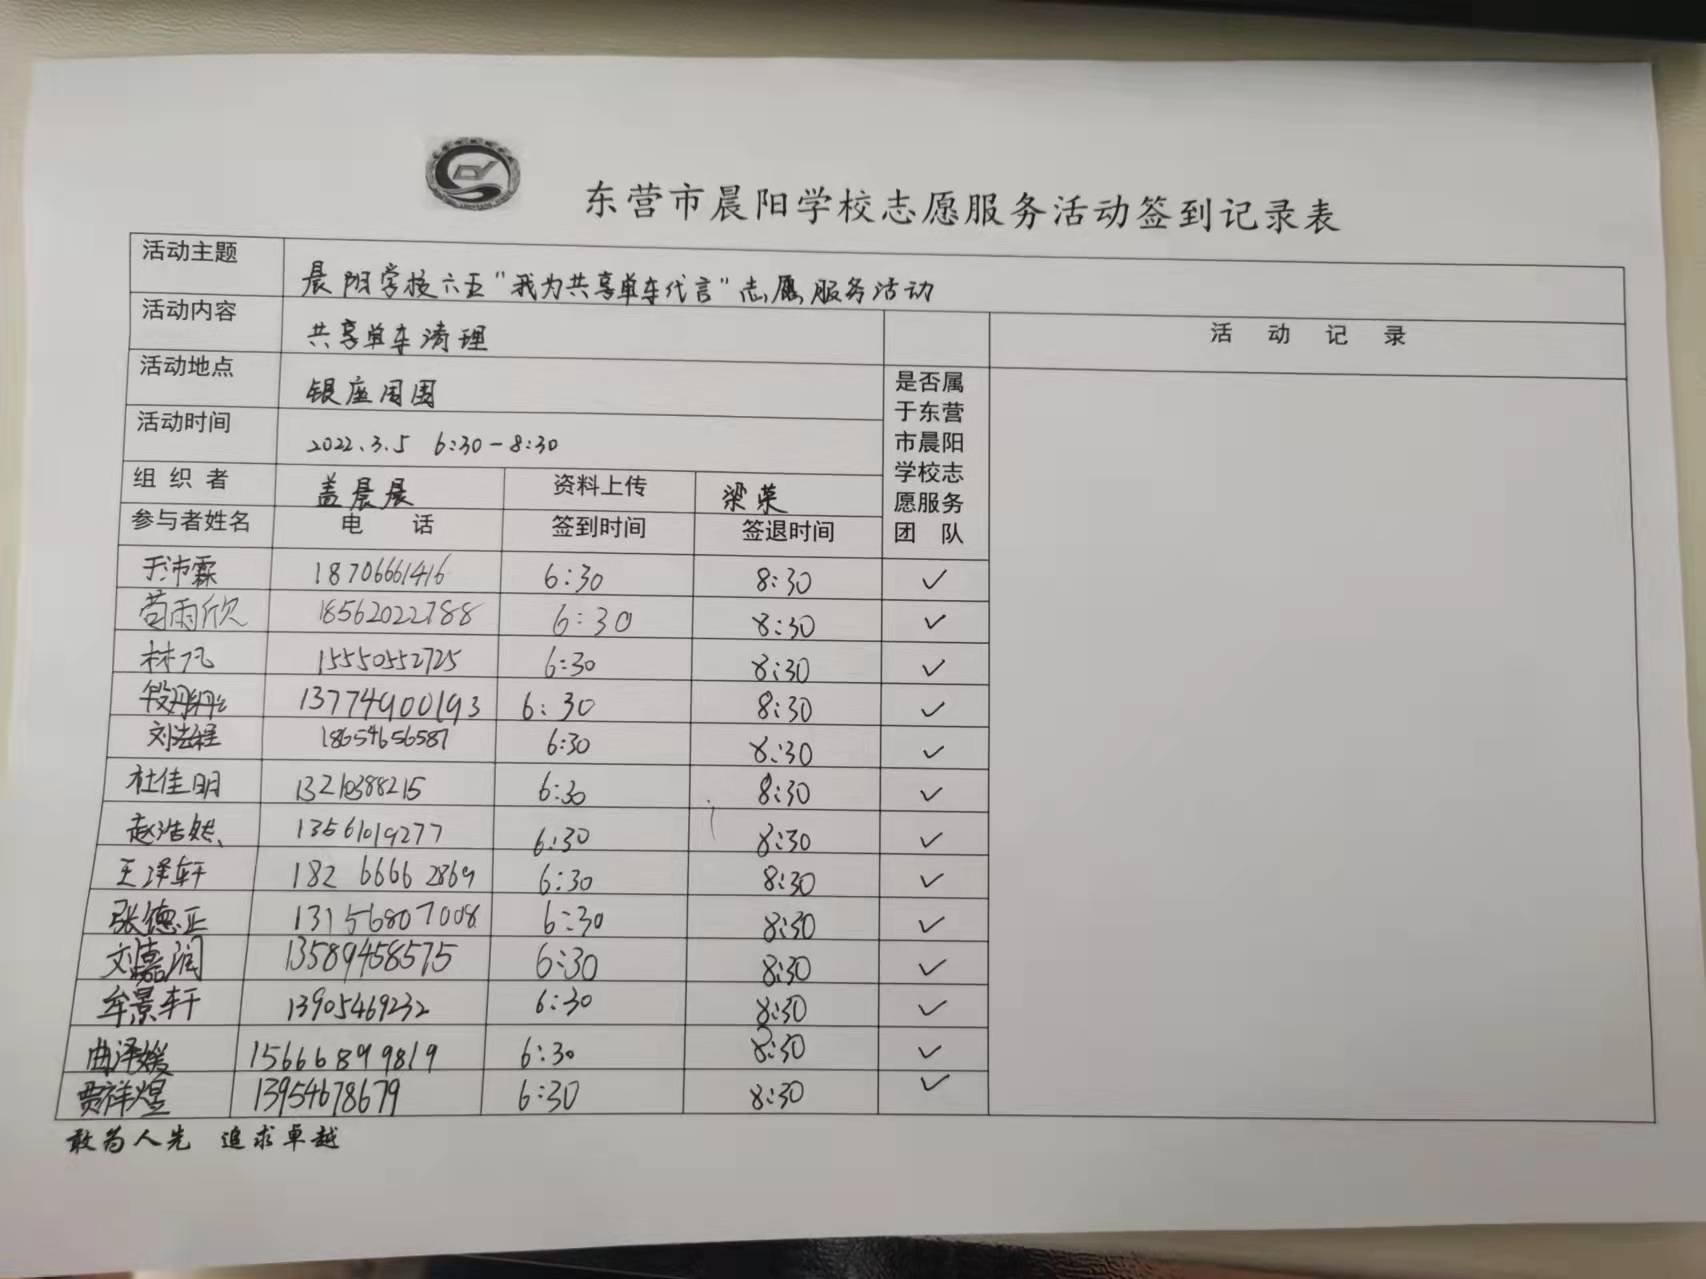 东营市晨阳学校志愿服务活动签到记录表
活动主题 晨阳学校六五“我为共享单车代言”志愿服务活动
活动内容 共享单车清理 活 动 记 录
活动地点 银座周围
活动时间 2022.3.5 6:30-8:30
组 织 者 盖晨晨 资料上传 梁荣
参与者姓名 电 话 签到时间 签退时间
是否属
于东营
市晨阳
学校志
愿服务
团 队
于沛霖 18706661416 6:30 8:30 ✓
苟雨欣 18562022788 6:30 8:30 ✓
林凡 15550552725 6:30 8:30 ✓
13774900193 6:30 8:30 ✓
刘法程 18654656587 6:30 8:30 ✓
杜佳明 13210388215 6:30 8:30 ✓
赵浩然 13561019277 6:30 8:30 ✓
王泽轩 182 6666 2869 6:30 8:30 ✓
张德正 13156807008 6:30 8:30 ✓
刘嘉润 13589458575 6:30 8:30 ✓
牟景轩 13905469232 6:30 8:30 ✓
曲泽媛 15666899819 6:30 8:30 ✓
贾祥煜 13954678679 6:30 8:30 ✓
敢为人先 追求卓越